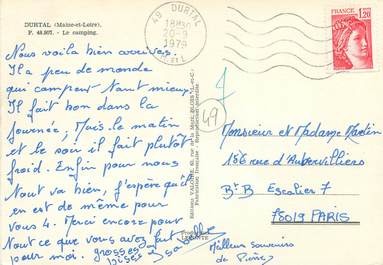 DURTAL (Maine-et-Loire).
P. 48.907. - Le camping.
49 DURTAL
18H30
20-9
1979
M. ET L.
FRANCE
1,20
Nous voilà bien arrivés.
Il a peu de monde
qui campeur tant mieux.
Il fait bon dans la
journée; Mais le matin
et le soir il fait plutôt
froid. Enfin pour nous
tout va bien, j'espère qu'il
en est de même pour
vous 4. Merci encore pour
tout ce que vous avez fait
pour moi. grosses
bises
49
Monsieur et Madame Martin
156 rue d'Aubervilliers
Bt B Escalier 7
75019 PARIS
Meilleurs souvenirs
de